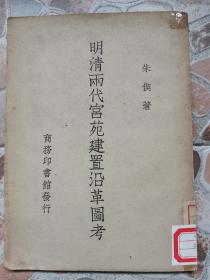 朱偰著
明清兩代宮苑建置沿革圖考
商務印書館發行